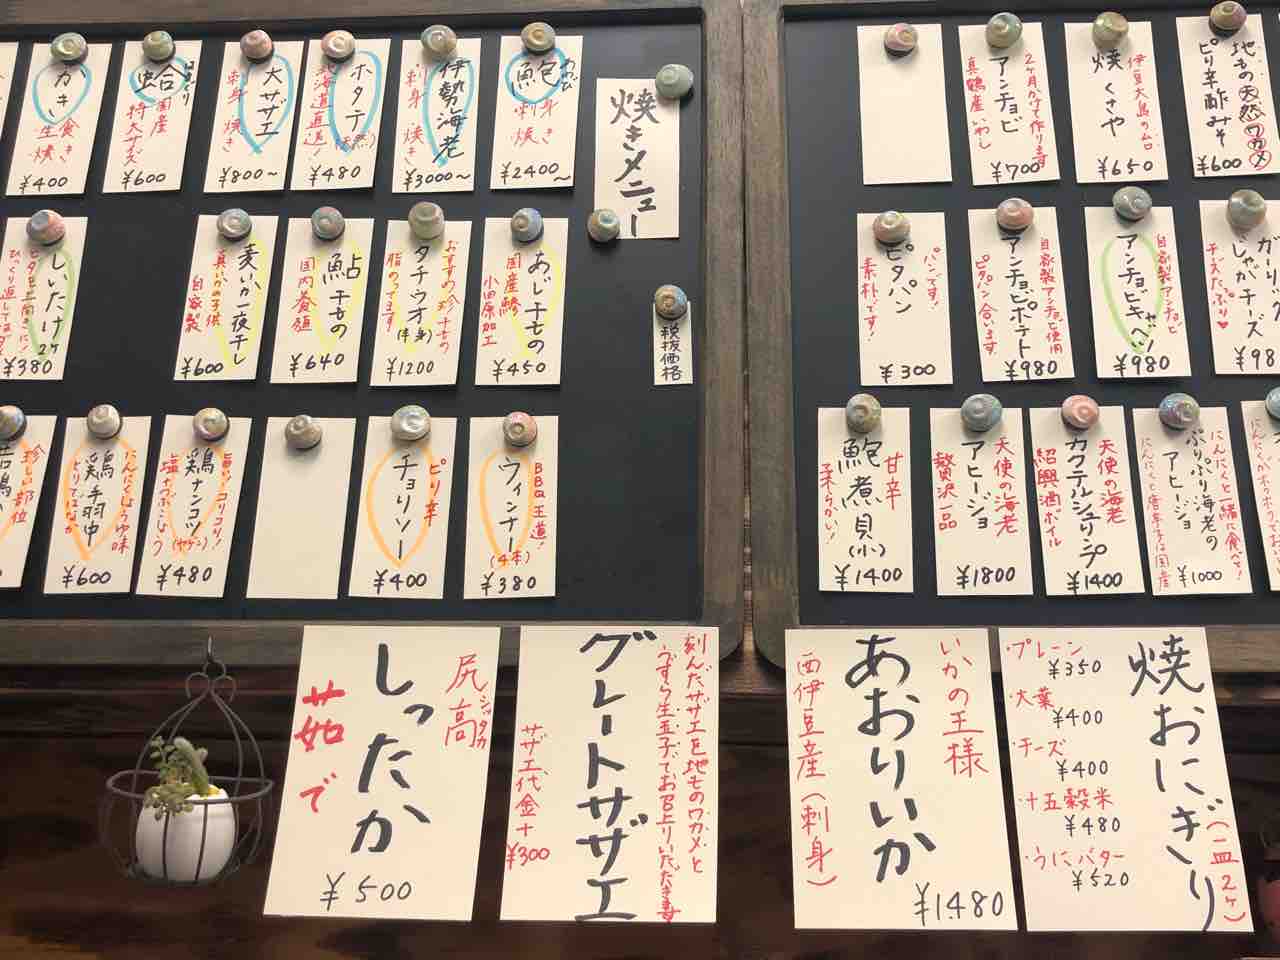 焼きメニュー
税抜価格
鮑
あわび
刺身
焼き
¥2400〜
伊勢海老
刺身・焼き
¥3000〜
ホタテ
(天然)
北海道直送!
¥480
大サザエ
刺身・焼き
¥800〜
はまぐり
蛤
国産
特大サイズ
¥600
かき
生食
焼き
¥400
あじ干もの
国産鯵
小田原加工
¥450
おすすめの珍干もの
タチウオ(半身)
脂のってます
¥1200
鮎干もの
国内養殖
¥640
麦いか一夜干し
真いかの子供
自家製
¥600
しいたけ2ケ
¥380
BBQ王道!
ウィンナー(4本)
¥380
ピリ辛
チョリソー
¥400
旨い!コリコリ!
鶏ナンコツ(ヤゲン)
塩こうぶしょう
¥480
にんにくしょうゆ味
鶏手羽中
¥600
珍しい部位
地もの天然ワカメ
ピリ辛酢みそ
¥600
伊豆大島のムロ
焼くさや
¥650
2ヶ月かけて作ります
アンチョビ
真鶴産いわし
¥700
じゃがチーズ
チーズたっぷり♡
¥98
自家製アンチョビ
アンチョビキャベツ
¥980
自家製アンチョビ使用
アンチョビポテト
ピタパン合います
¥980
パンです!
ピタパン
素朴です!
¥300
にんにくと一緒に食べて!
ぷりぷり海老の
アヒージョ
にんにくと唐辛子は国産
¥1000
天使の海老
カクテルシュリンプ
紹興酒ボイル
¥1400
天使の海老
アヒージョ
贅沢一品
¥1800
甘辛
鮑煮貝(小)
柔らかい!
¥1400
尻高
シッタカ
しったか
茹で
¥500
刻んだサザエを地ものワカメと
うずら生玉子でお召上りいただきます
グレートサザエ
サザエ代金+
¥300
いかの王様
あおりいか
西伊豆産(刺身)
¥1.480
焼おにぎり
(一皿2ケ)
・プレーン
¥350
・大葉
¥400
・チーズ
¥400
・十五穀米
¥480
・うにバター
¥520